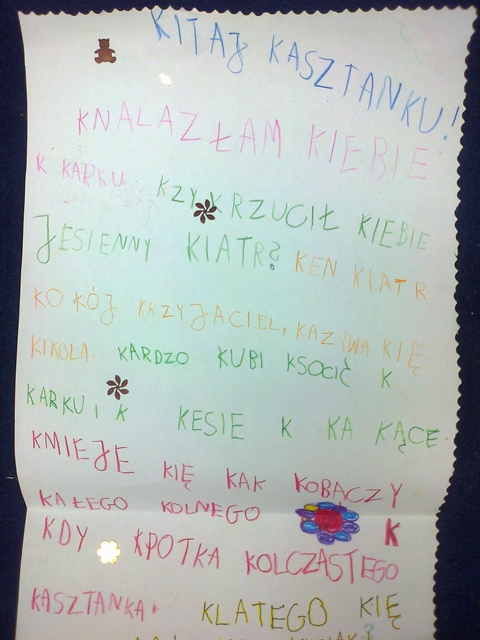 KITAJ KASZTANKU!
KNALAZŁAM KIEBIE
K KARKU. KZY KRZUCIŁ KIEBIE
JESIENNY KIATR? KEN KIATR
KO KÓJ KRZYJACIEL, KAZYWA KIĘ
KIKOLA. KARDZO KUBI KSOCIĆ K
KARKU I K KESIE K KA KĄCE
KMIEJE KIĘ KAK KOBACZY
KAŁEGO KOLNEGO K
KDY KPOTKA KOLCZASTEGO
KASZTANKA. KLATEGO KIĘ